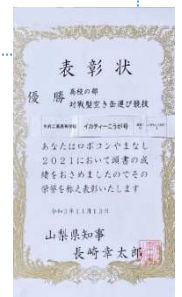 表彰状
優勝 高校の部
対戦型空き缶運び競技
イカティーこうが号
あなたはロボコンやまなし
2021において頭書の成
績をおさめましたのでその
栄誉を称え表彰いたします
令和3年11月13日
山梨県知事
長崎幸太郎